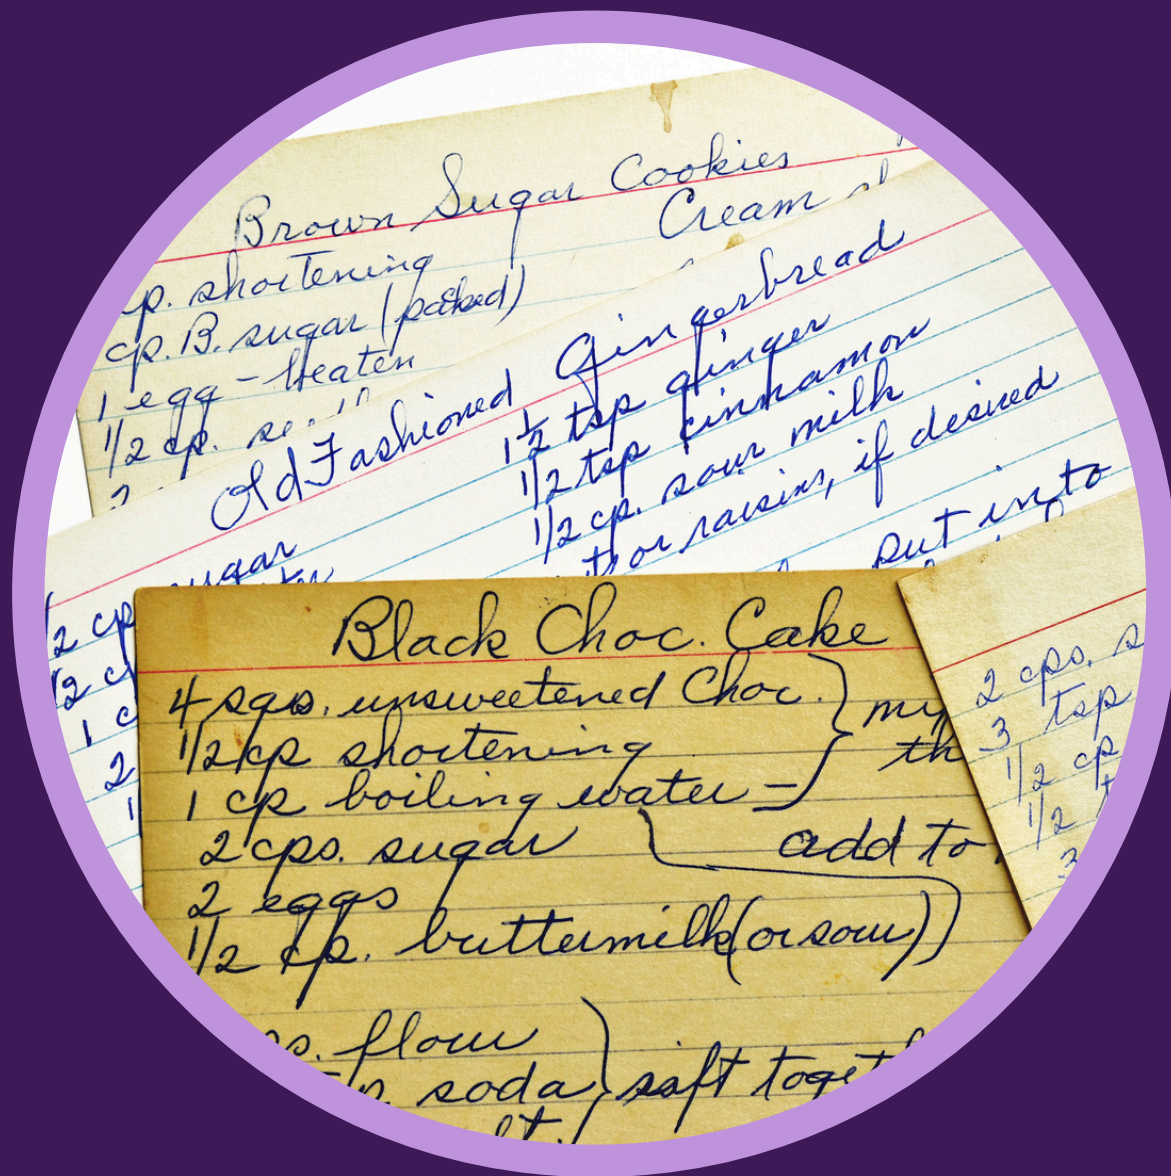 Brown Sugar Cookies
Cream
p. shortening
cp. B. sugar (packed)
1 egg - beaten
1/2 cp.
Old Fashioned Gingerbread
1 1/2 tsp ginger
1/2 tsp cinnamon
1/2 cp. sour milk
or raisins, if desired
put into
sugar
1/2 cp
1/2 c
1 c
2
1
Black Choc. Cake
4 sqs. unsweetened Choc.
1/2 cp shortening
1 cp boiling water -
2 cps. sugar
add to
2 eggs
1/2 cp. buttermilk (or sour)
s. flour
soda
sift toget
lt.
2 cps. s
3 tsp
1/2 cp
1/2 t
3